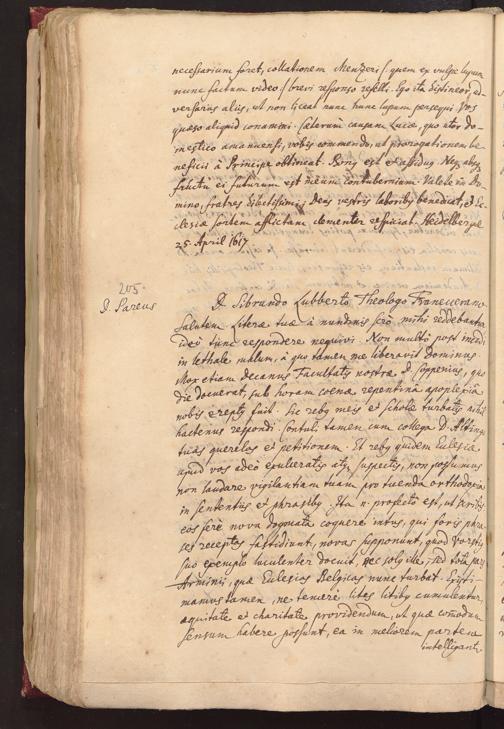 necessarium foret, collationem Menzeri (quem ex vulpe lupum
nunc factum video) brevi responso refelli. Ego ita distineor, ad-
versariis aliis, ut non liceat nunc hunc lupum persequi. Vos
quæso aliquid conamini. Cæterum causam Lucæ, quo utor do-
mestico amanuensi, vobis commendo, ut prorogationem be-
neficii à Principe obtineat. Bonus est et assiduus. Neq; absq;
fructu ei futurum est meum contubernium. Valete in Do-
mino, fratres dilectissimi; deus vestris laboribus benedicat, et Ec-
clesiæ sortem afflictam clementer respiciat. Heidelbergæ
25 April 1617
205.
D. Pareus
D. Sibrando Lubberto Theologo Franequerano
Salutem. Literæ tuæ à nundinis serò mihi reddebantur
Ideo tunc respondere nequivi. Non multò post incidi
in lethale malum, à quo tamen me liberavit Dominus
Mox etiam decanus Facultatis nostræ D. Coppenius, quo
die docuerat, sub horam coenæ repentina apoplexia
nobis ereptus fuit. Sic rebus meis et scholæ turbatis nihil
hactenus respondi. Contuli tamen cum collega D. Altingo
tuas querelas et petitionem. Et rebus quidem Ecclesiæ
apud vos adeò exulceratis atq; suspectis, non possumus
non laudare vigilantiam tuam pro tuenda orthodoxia
in sententiis et phrasibus. Ita n. profectò est, ut scribis,
eos ferè nova dogmata coquere intus, qui foris phra-
ses receptas fastidiunt, novas supponunt, quod Vorstius
suo exemplo luculenter docuit, nec solus ille, sed tota pars
Arminii, quæ Ecclesias Belgicas nunc turbat. Existi-
mamus tamen, ne temerè lites litibus cumulentur,
æquitate et charitate providendum, ut quæ commodum
sensum habere possunt, ea in meliorem partem
intelligantur